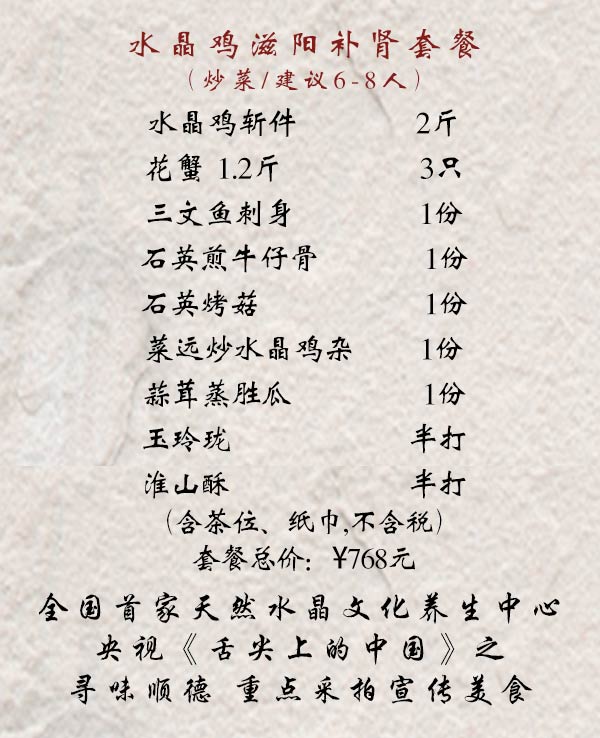 水晶鸡滋阳补肾套餐
（炒菜/建议6-8人）
水晶鸡斩件 2斤
花蟹 1.2斤 3只
三文鱼刺身 1份
石英煎牛仔骨 1份
石英烤菇 1份
菜远炒水晶鸡杂 1份
蒜茸蒸胜瓜 1份
玉玲珑 半打
淮山酥 半打
（含茶位、纸巾,不含税）
套餐总价：¥768元
全国首家天然水晶文化养生中心
央视《舌尖上的中国》之
寻味顺德 重点采拍宣传美食